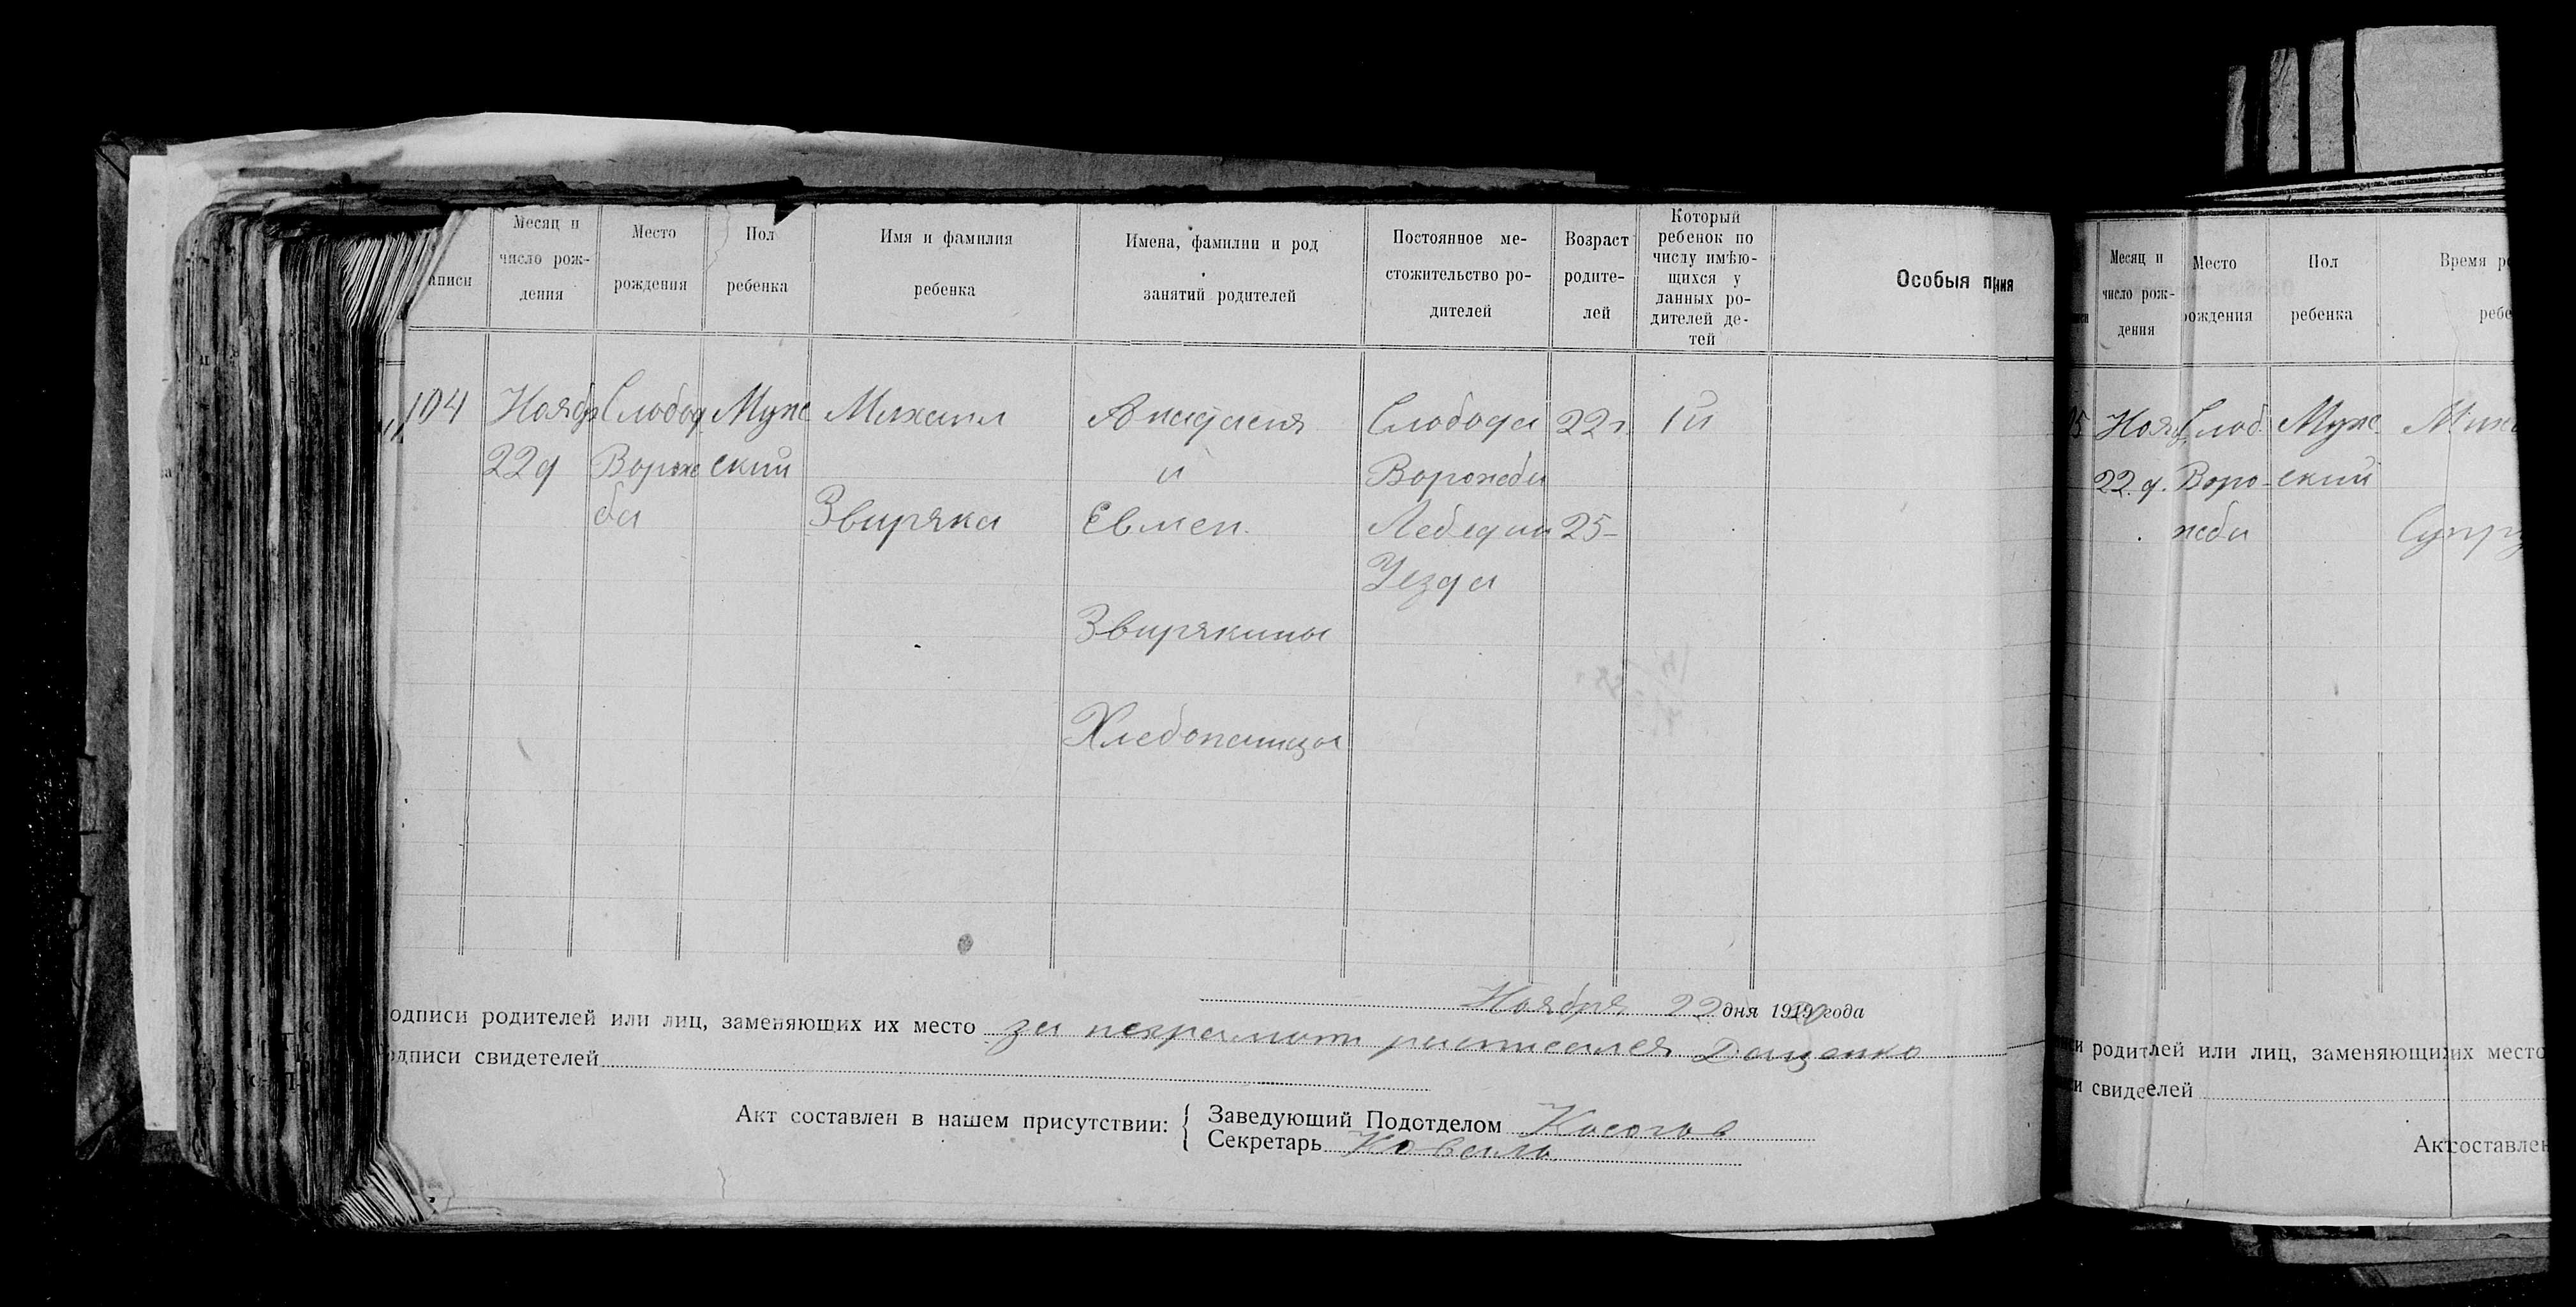 аписи
Месяц и
число рож-
дения
Место
рождения
Пол
ребенка
Имя и фамилия
ребенка
Имена, фамилии и род
занятий родителей
Постоянное ме-
стожительство ро-
дителей
Возраст
родите-
лей
Который
ребенок по
числу имѣю-
щихся у
данных ро-
дителей де-
тей
Особыя п
104
Ноябр
22 д
Слобод
Ворож
ба
Муже
ский
Михаил
Звиряка
и
Евмен
Звирякины
Хлебопашцы
Слобода
Ворожба
Лебедин
Уезда
22 г.
25-
1й
Ноября 22 дня 19 года
одписи родителей или лиц, заменяющих их место за неграмотн расписался Даценко
одписи свидетелей
Акт составлен в нашем присутствии:
Заведующий Подотделом Косогов
Секретарь Коваль
Месяц и
число рож-
дения
Место
ождения
Пол
ребенка
Время р
ребе
5
Нояб
22. д.
Слоб.
Воро-
жба
Муже
ский
Миха
Супру
и родитлей или лиц, заменяющих место
и свидеелей
Актсоставлен